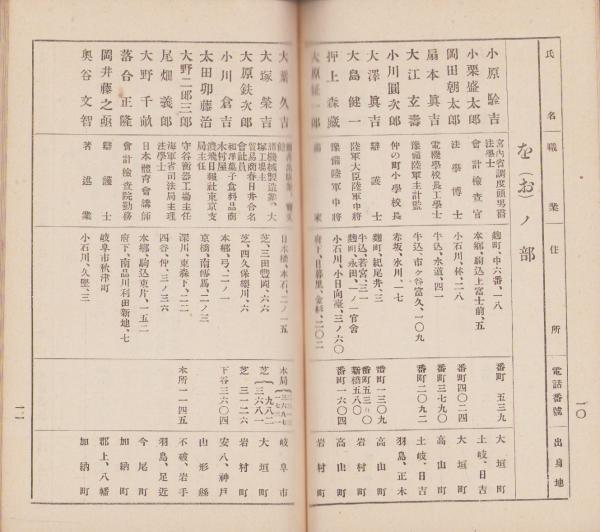 氏名 職業 住所 電話番號 出身地
を(お)ノ部
小原駩吉 宮內省調度頭男爵 法學士 麴町、中六番、一八 番町 五三九 大垣町
小栗盛太郎 會計檢查官 本鄕、駒込上富士前、五 土岐、日吉
岡田朝太郎 法學博士 小石川、林、二八 番町四〇二四 大垣町
扇本眞吉 電機學校長工學士 牛込、水道、四一 番町三七九〇 高山町
大江玄壽 豫備陸軍主計監 牛込、市ヶ谷富久、一〇九 番町二〇九二 土岐、日吉
小川圓次郎 仲の町小學校長 赤坂、氷川、一七 羽島、正木
大澤眞吉 辯護士 麴町、紀尾井、三 番町一三〇九 高山町
大島健一 陸軍大臣陸軍中將 牛込、若宮、三一 麴町、永田、一ノ一官舍 番町五三〇 新橋五八〇 岩村町
押上森藏 豫備陸軍中將 小石川、小日向臺、三ノ六〇 番町一六〇四 高山町
大原 一郎 家 府下、日暮里、金杉、二〇二 岩村町
一〇
大葉久吉 日本橋、本石、二ノ一五 本局 岐阜市
大塚榮吉 機械製造業、大塚工場主 芝、三田豐岡、六六 芝 九八二 三六八一 大垣町
大原鈦次郎 貿易商幸日井合名會社員 芝、四久保櫻川、六 芝 三一二六 岩村町
小川倉吉 和洋菓子食料品商木村屋 本鄕、弓、二ノ一 下谷三六〇四 安八、神戶
太田卯藤治 濃飛日報社東京支局主任 京橋、南傳馬、二ノ三 山形縣
大野二郎三郎 守谷衡器工場主任 深川、東森下、二二 本所一一四五 不破、岩手
尾畑義郎 海軍省司法局主理 法學士 四谷、仲、三ノ三六 羽島、足近
大野千尉 日本體育會講師 本鄕、駒込東片、一五二 今尾町
落合正隆 會計檢查院勤務 府下、南品川利田新地、七 加納町
岡井藤之烝 辯護士 岐阜市秋津町 郡上、八幡
奧谷文智 著述業 小石川、久堅、三 加納町
一一